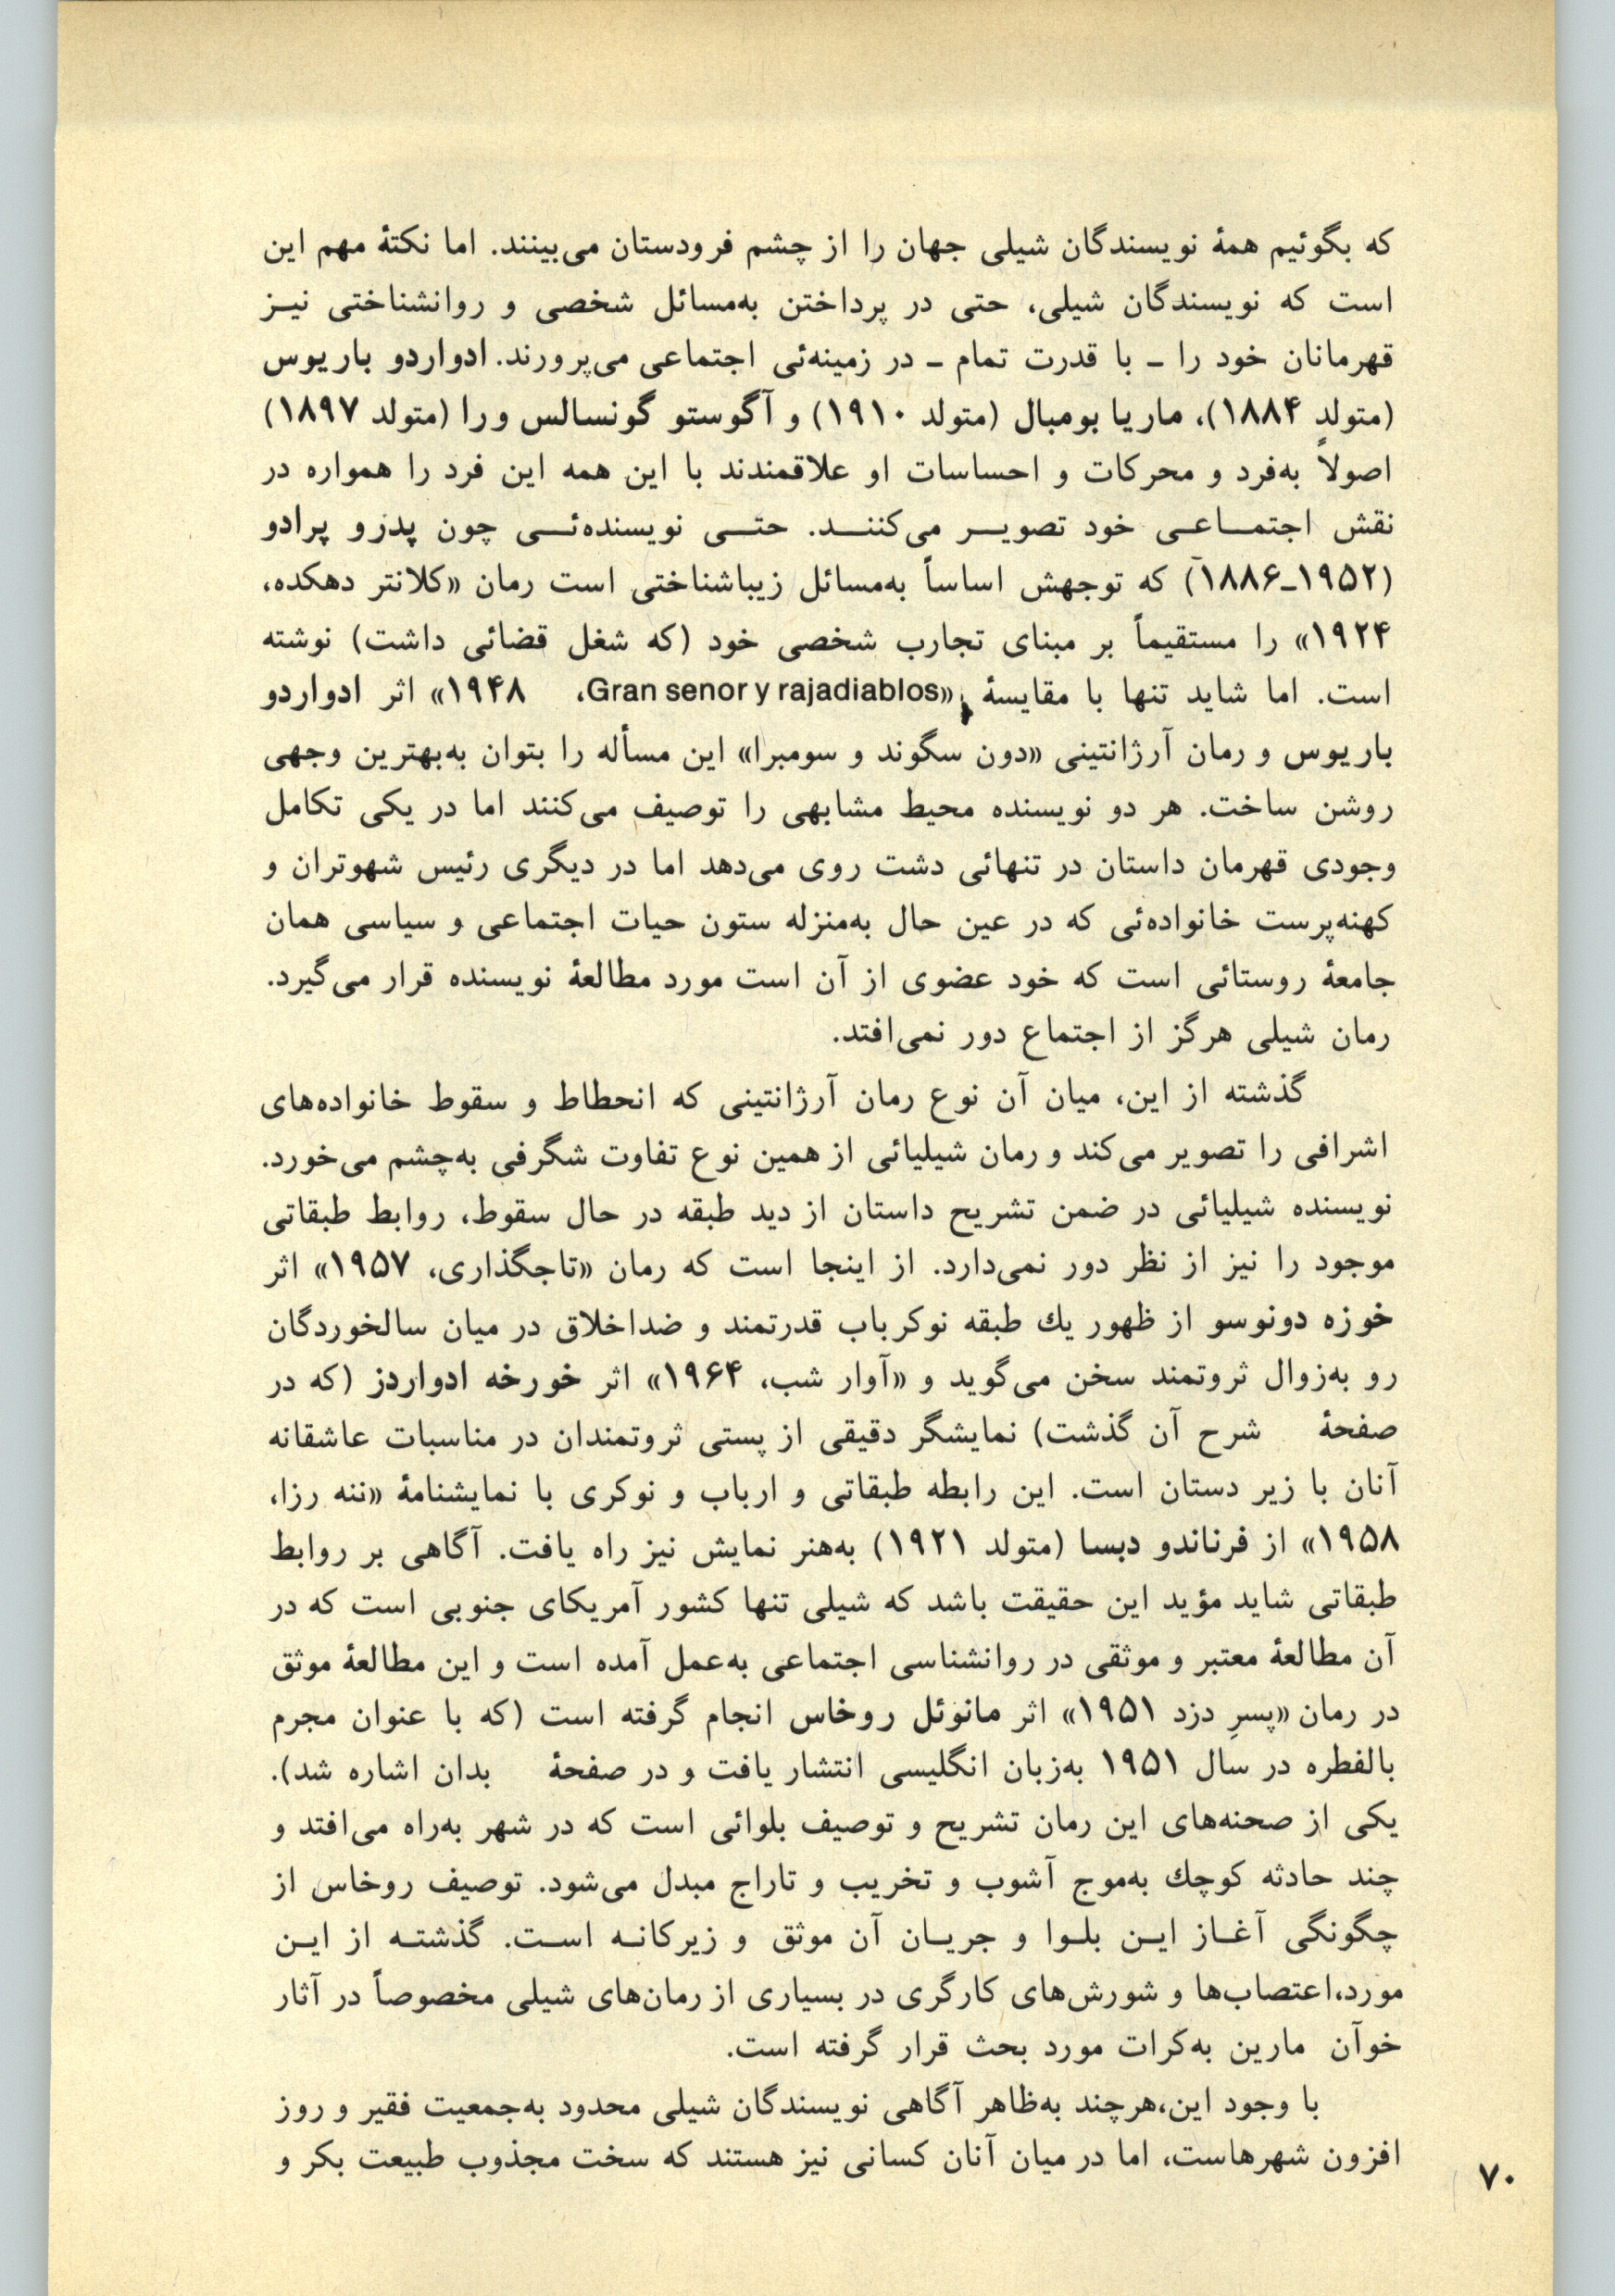 که بگوئیم همهٔ نویسندگان شیلی جهان را از چشم فرودستان می‌بینند. اما نکتهٔ مهم این
است که نویسندگان شیلی، حتی در پرداختن به‌مسائل شخصی و روانشناختی نیـز
قهرمانان خود را ـ با قدرت تمام ـ در زمینه‌ئی اجتماعی می‌پرورند. ادواردو باریوس
(متولد ۱۸۸۴)، ماریا بومبال (متولد ۱۹۱۰) و آگوستو گونسالس ورا (متولد ۱۸۹۷)
اصولاً به‌فرد و محرکات و احساسات او علاقمندند با این همه این فرد را همواره در
نقش اجتمـــاعـی خود تصویـــر می‌کننــد. حتــی نویسنده‌ئــی چون پدرو پرادو
(۱۹۵۲ـ۱۸۸۶) که توجهش اساساً به‌مسائل زیباشناختی است رمان «کلانتر دهکده،
۱۹۲۴» را مستقیماً بر مبنای تجارب شخصی خود (که شغل قضائی داشت) نوشته
است. اما شاید تنها با مقایسهٔ «Gran senor y rajadiablos، ۱۹۴۸» اثر ادواردو
باریوس و رمان آرژانتینی «دون سگوند و سومبرا» این مسأله را بتوان به‌بهترین وجهی
روشن ساخت. هر دو نویسنده محیط مشابهی را توصیف می‌کنند اما در یکی تکامل
وجودی قهرمان داستان در تنهائی دشت روی می‌دهد اما در دیگری رئیس شهوتران و
کهنه‌پرست خانواده‌ئی که در عین حال به‌منزله ستون حیات اجتماعی و سیاسی همان
جامعهٔ روستائی است که خود عضوی از آن است مورد مطالعهٔ نویسنده قرار می‌گیرد.
رمان شیلی هرگز از اجتماع دور نمی‌افتد.
گذشته از این، میان آن نوع رمان آرژانتینی که انحطاط و سقوط خانواده‌های
اشرافی را تصویر می‌کند و رمان شیلیائی از همین نوع تفاوت شگرفی به‌چشم می‌خورد.
نویسنده شیلیائی در ضمن تشریح داستان از دید طبقه در حال سقوط، روابط طبقاتی
موجود را نیز از نظر دور نمی‌دارد. از اینجا است که رمان «تاجگذاری، ۱۹۵۷» اثر
خوزه دونوسو از ظهور یك طبقه نوکرباب قدرتمند و ضداخلاق در میان سالخوردگان
رو به‌زوال ثروتمند سخن می‌گوید و «آوار شب، ۱۹۶۴» اثر خورخه ادواردز (که در
صفحهٔ شرح آن گذشت) نمایشگر دقیقی از پستی ثروتمندان در مناسبات عاشقانه
آنان با زیر دستان است. این رابطه طبقاتی و ارباب و نوکری با نمایشنامهٔ «ننه رزا،
۱۹۵۸» از فرناندو دبسا (متولد ۱۹۲۱) به‌هنر نمایش نیز راه یافت. آگاهی بر روابط
طبقاتی شاید مؤید این حقیقت باشد که شیلی تنها کشور آمریکای جنوبی است که در
آن مطالعهٔ معتبر و موثقی در روانشناسی اجتماعی به‌عمل آمده است و این مطالعهٔ موثق
در رمان «پسرِ دزد ۱۹۵۱» اثر مانوئل روخاس انجام گرفته است (که با عنوان مجرم
بالفطره در سال ۱۹۵۱ به‌زبان انگلیسی انتشار یافت و در صفحهٔ بدان اشاره شد).
یکی از صحنه‌های این رمان تشریح و توصیف بلوائی است که در شهر به‌راه می‌افتد و
چند حادثه کوچك به‌موج آشوب و تخریب و تاراج مبدل می‌شود. توصیف روخاس از
چگونگی آغـاز ایـن بلـوا و جریـان آن موثق و زیرکانـه اسـت. گذشتـه از ایـن
مورد،اعتصاب‌ها و شورش‌های کارگری در بسیاری از رمان‌های شیلی مخصوصاً در آثار
خوآن مارین به‌کرات مورد بحث قرار گرفته است.
با وجود این،هرچند به‌ظاهر آگاهی نویسندگان شیلی محدود به‌جمعیت فقیر و روز
افزون شهرهاست، اما در میان آنان کسانی نیز هستند که سخت مجذوب طبیعت بکر و
۷۰